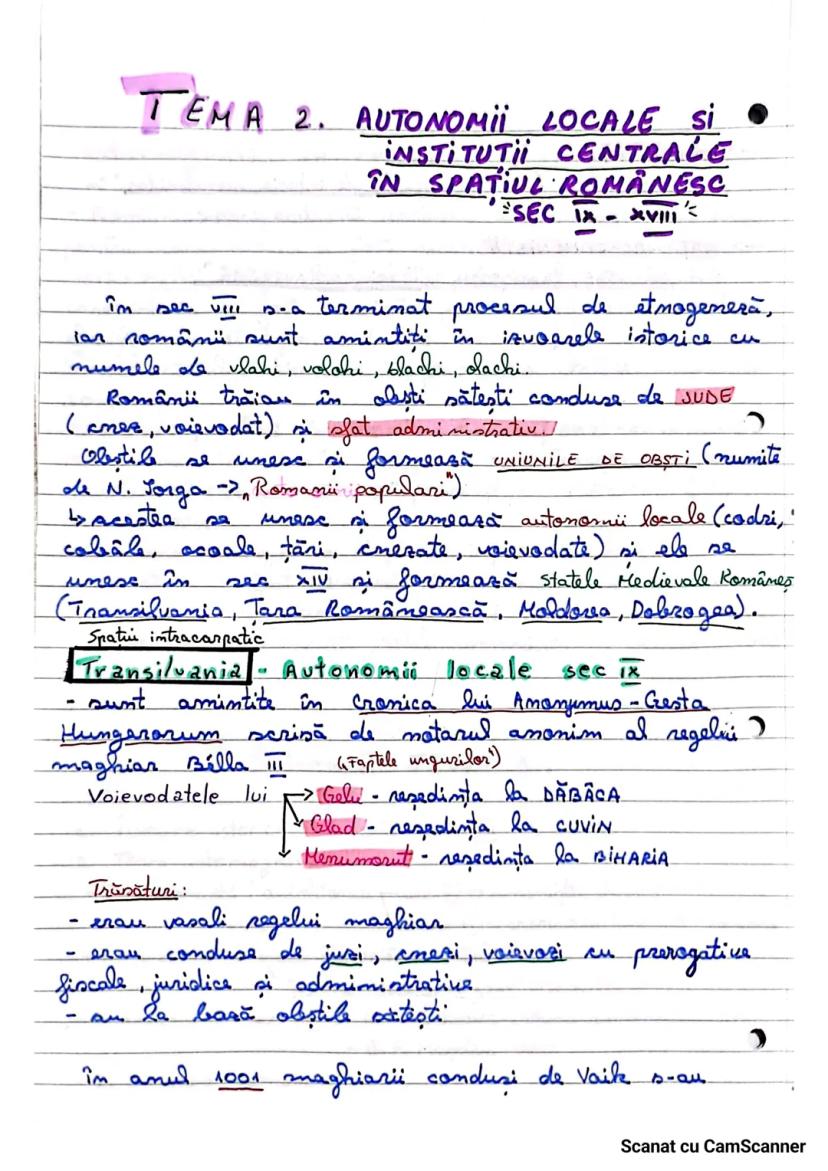 TEMA 2. AUTONOMII LOCALE și
INSTITUȚII CENTRALE
ÎN SPAȚIUL ROMÂNESC
SEC IX - XVIII
în sec VIII s-a terminat procesul de etnogeneză,
iar românii sunt amintiți în izvoarele istorice cu
numele de vlahi, volohi, blachi, olachi.
Românii trăiau în obști sătești conduse de JUDE
(cnez, voievodat) și sfat administrativ.
Obștile se unesc și formează UNIUNILE DE OBȘTI (numite
de N. Iorga -> „Romanii populari")
↳ acestea se unesc și formează autonomii locale (codri,
cobâle, ocoale, țări, cnezate, voievodate) și ele se
unesc în sec XIV și formează statele Medievale Românes
(Transilvania, Țara Românească, Moldova, Dobrogea).
Spațiu intracarpatic
Transilvania - Autonomii locale sec IX
- sunt amintite în Cronica lui Anonymus - Gesta
Hungarorum scrisă de notarul anonim al regelui
maghiar Bélla III ("Faptele ungurilor")
Voievodatele lui -> Gelu - reședința la DĂBÂCA
Glad - reședința la CUVIN
Menumorut - reședința la BIHARIA
Trăsături:
- erau vasali regelui maghiar
- erau conduse de juzi, cnezi, voievozi cu prerogative
fiscale, juridice și administrative
- au la bază obștile sătești
în anul 1001 maghiarii conduși de Vaik s-au
Scanat cu CamScanner